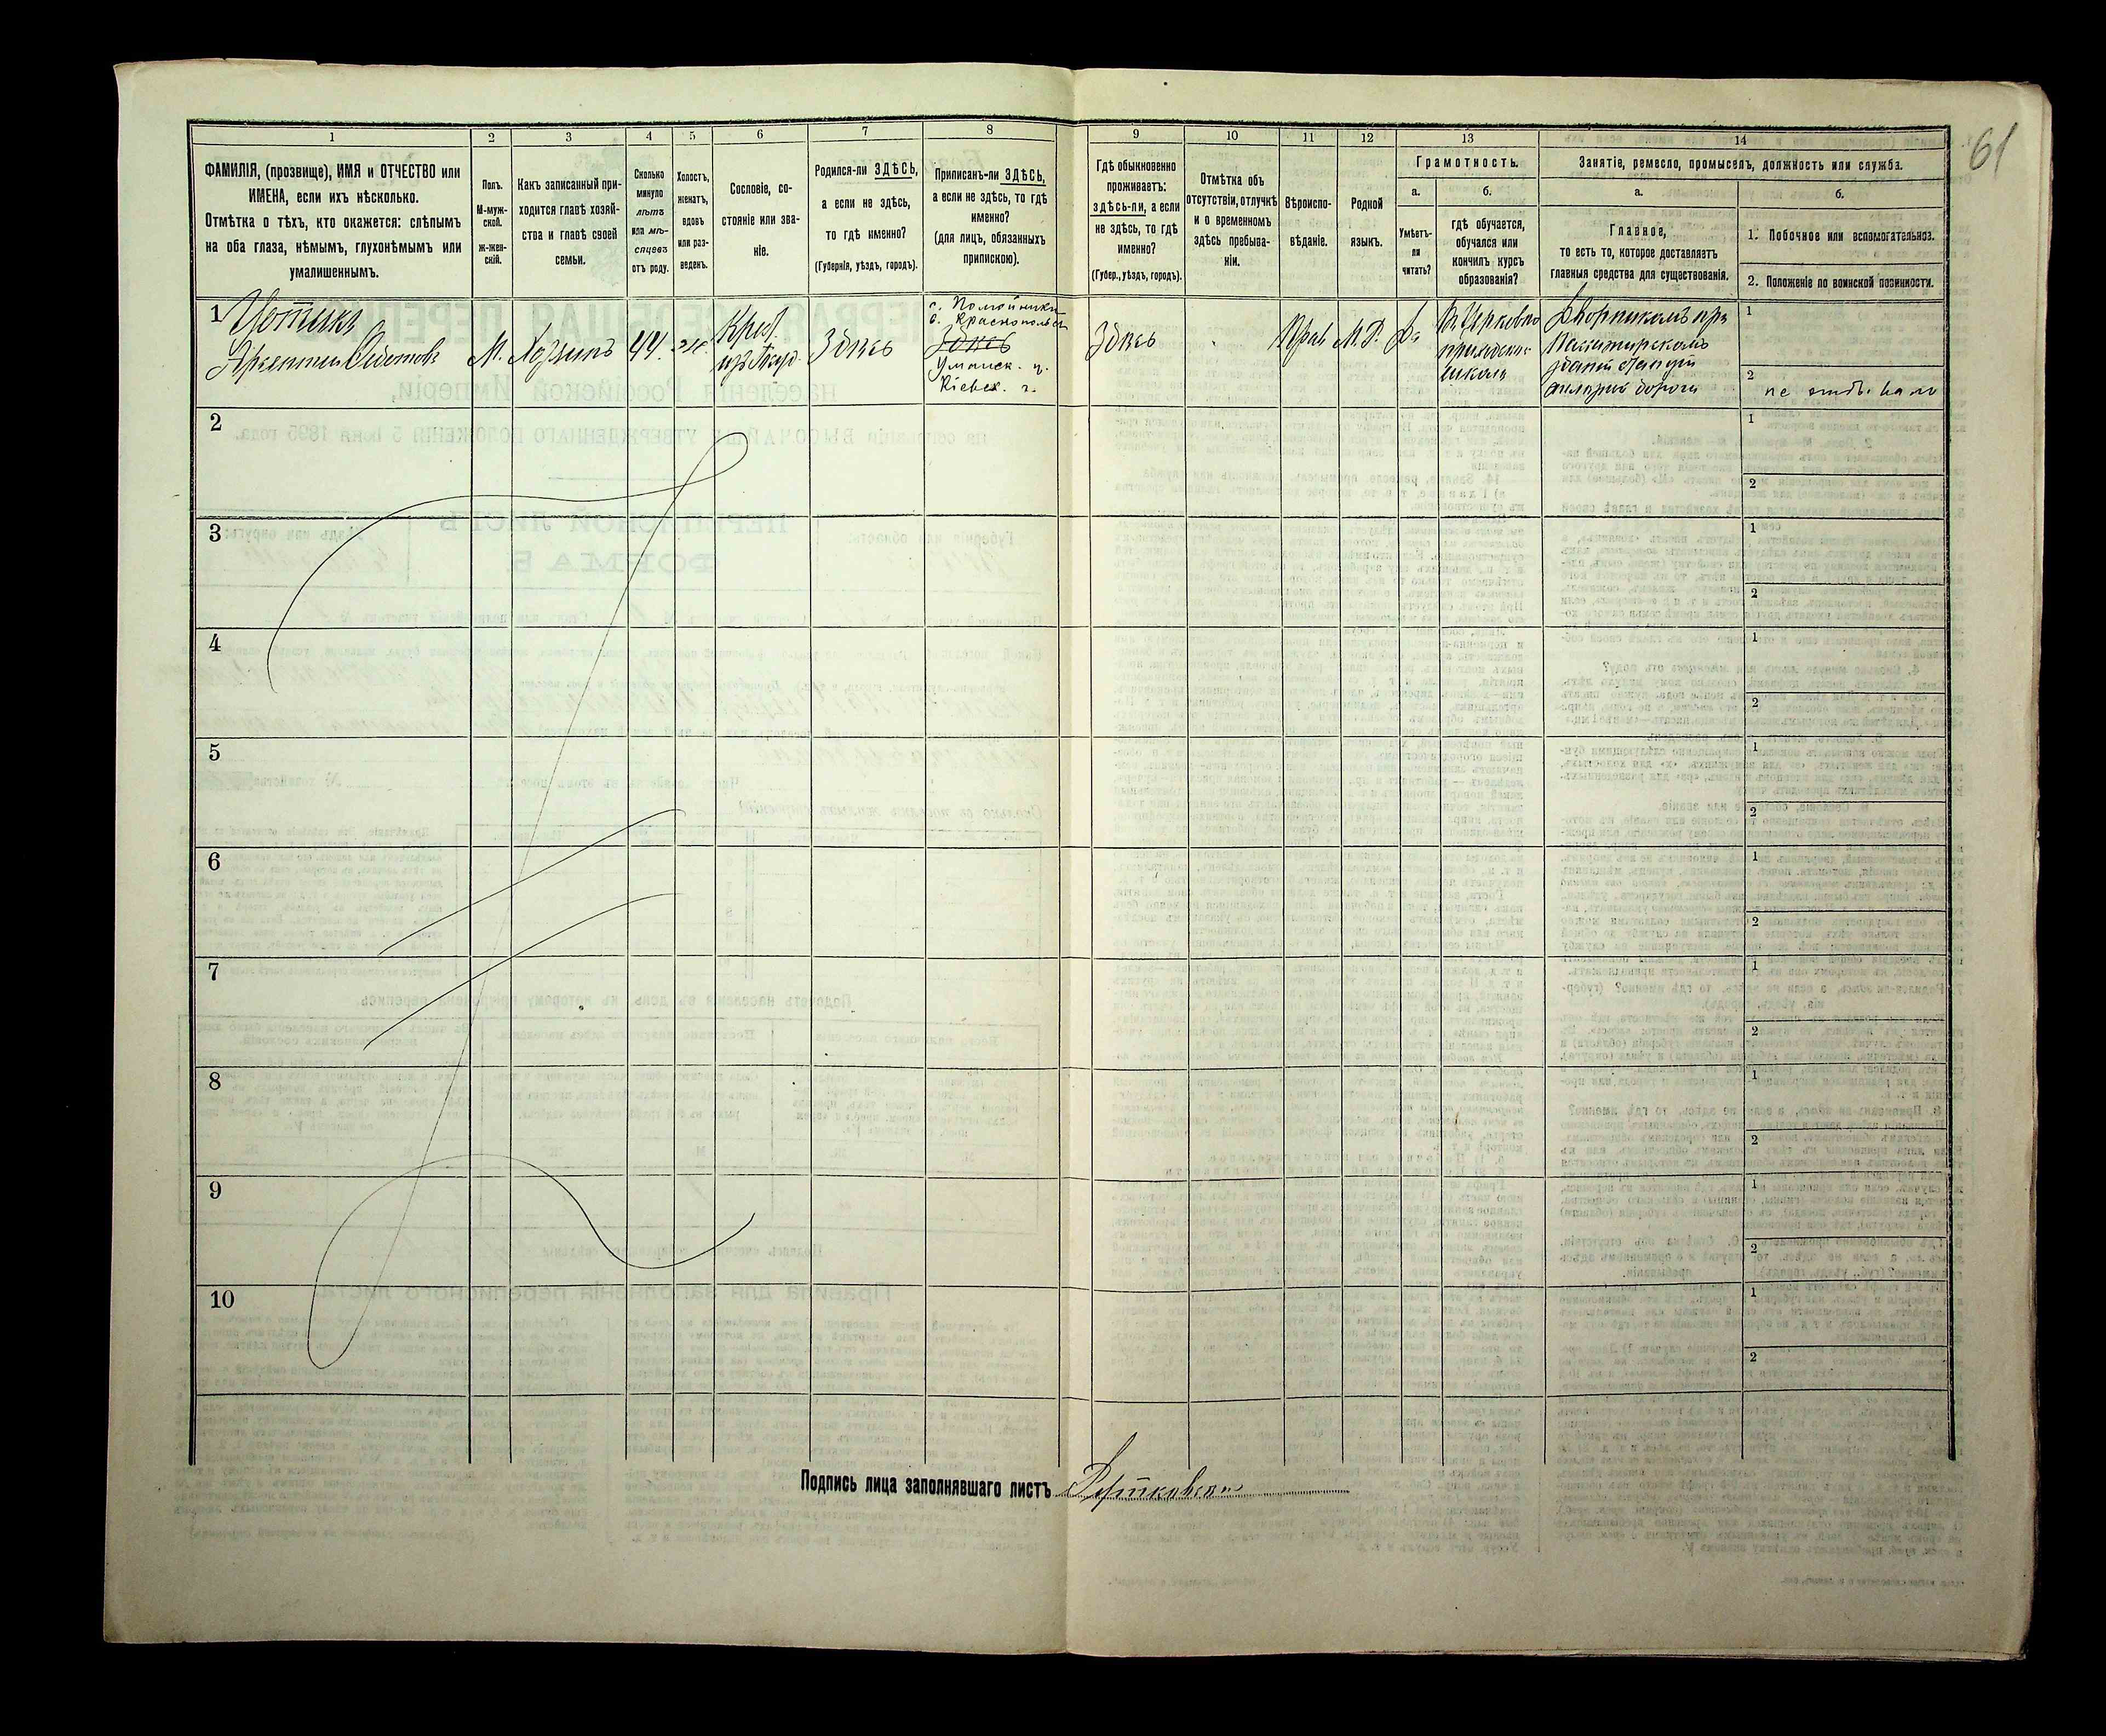 61
1
2
3
4
5
6
7
8
9
10
11
12
13
14
ФАМИЛІЯ, (прозвище), ИМЯ и ОТЧЕСТВО или
ИМЕНА, если ихъ нѣсколько.
Отмѣтка о тѣхъ, кто окажется: слѣпымъ
на оба глаза, нѣмымъ, глухонѣмымъ или
умалишеннымъ.
Полъ.
М-муж-
ской.
ж-жен-
скій.
Какъ записанный при-
ходится главѣ хозяй-
ства и главѣ своей
семьи.
Сколько
минуло
лѣтъ
или мѣ-
сяцевъ
отъ роду.
Холостъ,
женатъ,
вдовъ
или раз-
веденъ.
Сословіе, со-
стояніе или зва-
ніе.
Родился-ли ЗДѢСЬ,
а если не здѣсь,
то гдѣ именно?
(Губернія, уѣздъ, городъ).
Приписанъ-ли ЗДѢСЬ,
а если не здѣсь, то гдѣ
именно?
(для лицъ, обязанныхъ
припискою).
Гдѣ обыкновенно
проживаетъ:
здѣсь-ли, а если
не здѣсь, то гдѣ
именно?
(Губер., уѣздъ, городъ).
Отмѣтка объ
отсутствіи, отлучкѣ
и о временномъ
здѣсь пребыва-
ніи.
Вѣроиспо-
вѣданіе.
Родной
языкъ.
Грамотность.
а.
Умѣетъ-
ли
читать?
б.
гдѣ обучается,
обучался или
кончилъ курсъ
образованія?
Занятіе, ремесло, промыселъ, должность или служба.
а.
Главное,
то есть то, которое доставляетъ
главныя средства для существованія.
б.
1. Побочное или вспомогательное.
2. Положеніе по воинской повинности.
1
М.
Хозяинъ
44
Крест.
Здѣсь
Здѣсь
Уманск. у.
Кіевск. г.
Здѣсь
Прав
М.Р.
Да
школѣ
Дворникомъ при
желѣзной дороги
1
2
2
1
2
3
1
2
4
1
2
5
1
2
6
1
2
7
1
2
8
1
2
9
1
2
10
1
2
Подпись лица заполнявшаго листъ